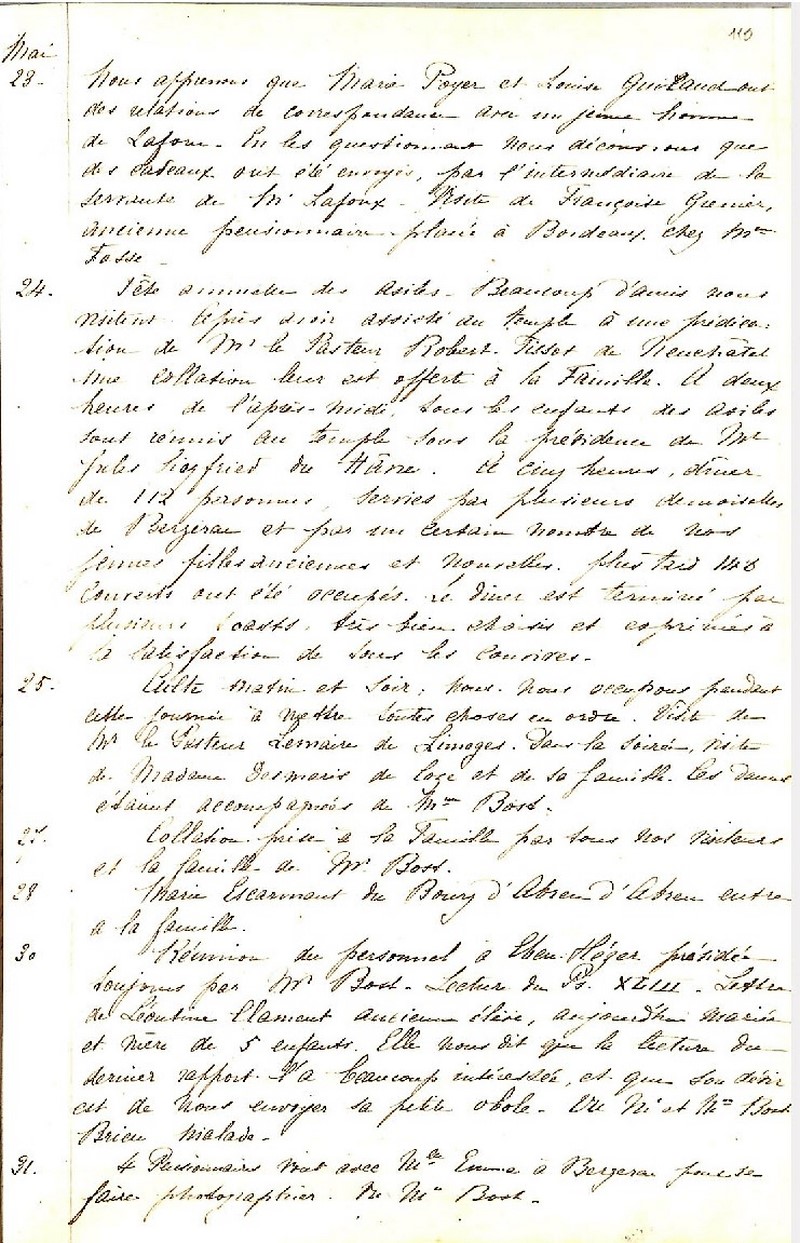 119
Mai
23. Nous apprenons que Marie Poyer et Louise Guillaud ont
des relations de correspondance avec un jeune homme
de Laforce. En les questionnant nous découvrons que
des cadeaux ont été envoyés, par l'intermédiaire de la
servante de Mr Lafoux. Visite de Françoise Grenier,
ancienne pensionnaire placée à Bordeaux chez Mme
Fosse.
24. Fête annuelle des asiles. Beaucoup d'amis nous
visitent. Après avoir assisté au temple à une prédica-
tion de Mr le Pasteur Robert-Tissot de Neuchâtel
une collation leur est offerte à la Famille. A deux
heures de l'après-midi, tous les enfants des asiles
sont réunis au temple sous la présidence de Mr
Jules Siegfried du Hâvre. A cinq heures, dîner
de 112 personnes, servies par plusieurs demoiselles
de Bergerac et par un certain nombre de nos
jeunes filles anciennes et nouvelles. Plus tard 148
couverts ont été occupés. Le dîner est terminé par
plusieurs toasts, très bien choisis et exprimés à
la satisfaction de tous les convives.
25. Culte matin et soir; nous nous occupons pendant
cette journée à mettre toutes choses en ordre. Visite de
Mr le Pasteur Lemaire de Limoges. Dans la soirée, visite
de Madame Desmaris de et de sa famille. Ces dames
étaient accompagnées de Mme Bost.
27. Collation prise à la Famille par tous nos visiteurs
et la famille de Mr Bost.
28 Marie Escarmant du Bourg d'Abren d'Abren entre
a la famille.
30 Réunion du personnel à Eben-Hézer présidée
toujours par Mr Bost. Lecture du Ps. XLIII. Lettre
de Léontine Clament ancienne élève, aujourd'hui mariée
et mère de 5 enfants. Elle nous dit que la lecture du
dernier rapport l'a beaucoup intéressée, et que son désir
est de nous envoyer sa petite obole. Vu Mr et Mme Bost
Brieu malade.
31. 4 Pensionnaires vont avec Mlle Emma à Bergerac pour se
faire photographier. Vu Mr Bost.